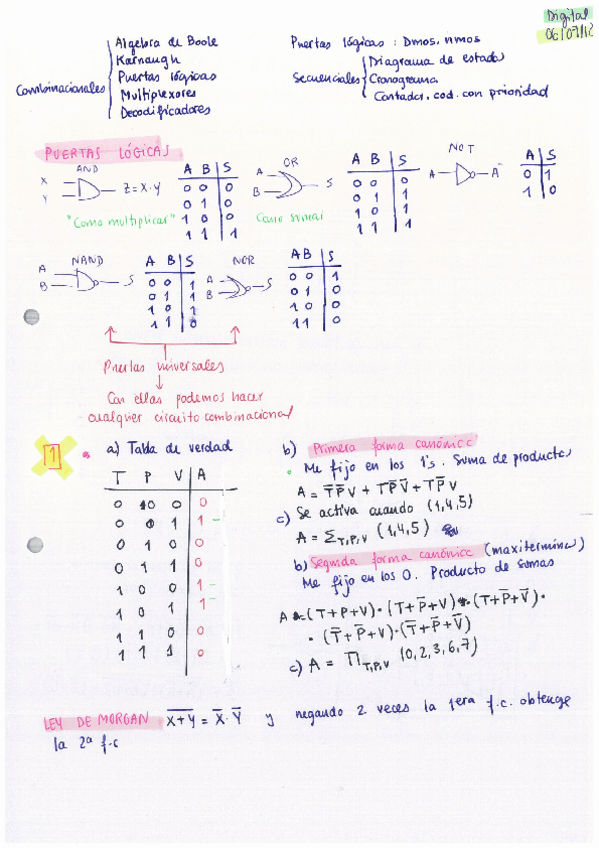 Digital
06/07/12
Combinacionales
Algebra de Boole
Karnaugh
Puertas lógicas
Multiplexores
Decodificadores
Puertas lógicas: Dmos, nmos
Secuenciales
Diagrama de estados
Cronograma
Contador, cod. con prioridad
PUERTAS LÓGICAS
AND
X
Y
Z = X·Y
"Como multiplicar"
A B S
0 0 0
0 1 0
1 0 0
1 1 1
OR
A
B
S
Como sumar
A B S
0 0 0
0 1 1
1 0 1
1 1 1
NOT
A
A̅
A S
0 1
1 0
NAND
A
B
S
A B S
0 0 1
0 1 1
1 0 1
1 1 0
NOR
A
B
S
A B S
0 0 1
0 1 0
1 0 0
1 1 0
Puertas universales
Con ellas podemos hacer
cualquier circuito combinacional
1
a) Tabla de verdad
T P V A
0 0 0 0
0 0 1 1
0 1 0 0
0 1 1 0
1 0 0 1
1 0 1 1
1 1 0 0
1 1 1 0
b) Primera forma canónica
Me fijo en los 1's. Suma de productos
A = T̅P̅V + TP̅V̅ + TP̅V
c) Se activa cuando (1,4,5)
A = Σ T,P,V (1,4,5)
b) Segunda forma canónica (maxitérminos)
Me fijo en los 0. Producto de sumas
A = (T+P+V)·(T+P̅+V)·(T+P̅+V̅)·
·(T̅+P̅+V)·(T̅+P̅+V̅)
c) A = Π T,P,V (0,2,3,6,7)
LEY DE MORGAN X̅+̅Y̅ = X̅·Y̅ y negando 2 veces la 1era f.c. obtengo
la 2ª f.c